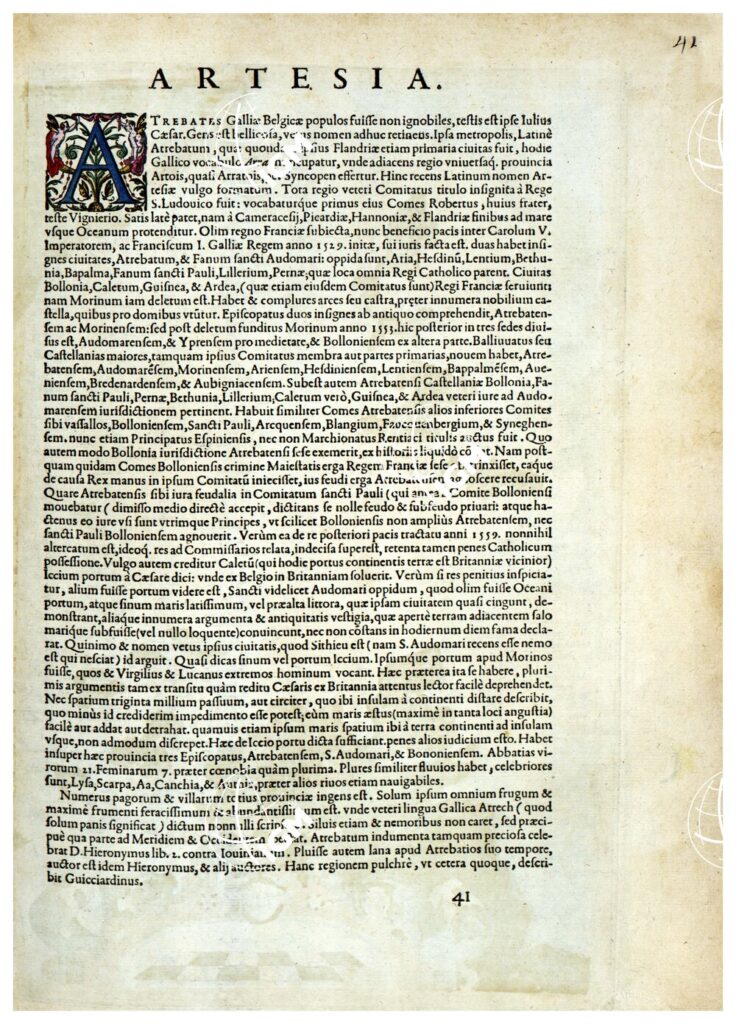 41
ARTESIA.
ATREBATES Galliæ Belgicæ populos fuisse non ignobiles, testis est ipse Iulius
Cæsar. Gens est bellicosa, vetus nomen adhuc retineus. Ipsa metropolis, Latinè
Atrebatum, quæ quonda ipsius Flandriæ etiam primaria ciuitas fuit, hodie
Gallico vocabulo nuncupatur, vnde adiacens regio vniuersaq. prouincia
Artois, quasi Arratois, per Syncopen effertur. Hinc recens Latinum nomen Ar-
tesiæ vulgo formatum. Tota regio veteri Comitatus titulo insignita à Rege
S. Ludouico fuit: vocabaturque primus eius Comes Robertus, huius frater,
teste Vignierio. Satis latè patet, nam à Cameracesij, Picardiæ, Hannoniæ, & Flandriæ finibus ad mare
vsque Oceanum protenditur. Olim regno Franciæ subiecta, nunc beneficio pacis inter Carolum V.
Imperatorem, ac Franciscum I. Galliæ Regem anno 1529. initæ, sui iuris facta est. duas habet insi-
gnes ciuitates, Atrebatum, & Fanum sancti Audomari: oppida sunt, Aria, Hesdinū, Lentium, Bethu-
nia, Bapalma, Fanum sancti Pauli, Lillerium, Pernæ; quæ loca omnia Regi Catholico parent. Ciuitas
Bollonia, Caletum, Guisnea, & Ardea, (quæ etiam eiusdem Comitatus sunt) Regi Franciæ seruiunt:
nam Morinum iam deletum est. Habet & complures arces seu castra, pręter innumera nobilium ca-
stella, quibus pro domibus vtūtur. Episcopatus duos insignes ab antiquo comprehendit, Atrebaten-
sem ac Morinensem: sed post deletum funditus Morinum anno 1553. hic posterior in tres sedes diui-
sus est, Audomarensem, & Yprensem pro medietate, & Bolloniensem ex altera parte. Balliuatus seu
Castellanias maiores, tamquam ipsius Comitatus membra aut partes primarias, nouem habet, Atre-
batensem, Audomarēsem, Morinensem, Ariensem, Hesdiniensem, Lentiensem, Bappalmēsem, Aue-
niensem, Bredenardensem, & Aubigniacensem. Subest autem Atrebatensi Castellaniæ Bollonia, Fa-
num sancti Pauli, Pernæ, Bethunia, Lillerium; Caletum verò, Guisnea, & Ardea veteri iure ad Audo-
marensem iurisdictionem pertinent. Habuit similiter Comes Atrebatensis alios inferiores Comites
sibi vasallos, Bolloniensem, Sancti Pauli, Arcquensem, Blangium, Faucquenbergium, & Syneghen-
sem. nunc etiam Principatus Espiniensis, nec non Marchionatus Rentiaci titulis auctus fuit. Quo
autem modo Bollonia iurisdictione Atrebatensi sese exemerit, ex historiis liquidò cōstat. Nam post-
quam quidam Comes Bolloniensis crimine Maiestatis erga Regem Franciæ sese obstrinxisset, eaque
de causa Rex manus in ipsum Comitatū iniecisset, ius feudi erga Atrebatensem agnoscere recusauit.
Quare Atrebatensis sibi iura feudalia in Comitatum sancti Pauli (qui antea à Comite Bolloniensi
mouebatur (dimisso medio directè accepit, dictitans se nolle feudo & subfeudo priuari: atque ha-
ctenus eo iure vsi sunt vtrimque Principes, vt scilicet Bolloniensis non ampliùs Atrebatensem, nec
sancti Pauli Bolloniensem agnouerit. Verùm ea de re posteriori pacis tractatu anni 1559. nonnihil
altercatum est, ideoq. res ad Commissarios relata, indecisa superest, retenta tamen penes Catholicum
possessione. Vulgo autem creditur Caletū (qui hodie portus continentis terræ est Britanniæ vicinior)
Iccium portum à Cæsare dici: vnde ex Belgio in Britanniam soluerit. Verùm si res penitius inspicia-
tur, alium fuisse portum videre est, Sancti videlicet Audomari oppidum, quod olim fuisse Oceani
portum, atque sinum maris latissimum, vel præalta littora, quæ ipsam ciuitatem quasi cingunt, de-
monstrant, aliaque innumera argumenta & antiquitatis vestigia, quæ apertè terram adiacentem salo
marique subfuisse (vel nullo loquente) conuincunt, nec non cōstans in hodiernum diem fama decla-
rat. Quinimo & nomen vetus ipsius ciuitatis, quod Sithieu est (nam S. Audomari recens esse nemo
est qui nesciat) id arguit. Quasi dicas sinum vel portum Iccium. Ipsumque portum apud Morinos
fuisse, quos & Virgilius & Lucanus extremos hominum vocant. Hæc præterea ita se habere, pluri-
mis argumentis tam ex transitu quàm reditu Cæsaris ex Britannia attentus lector facilè deprehendet.
Nec spatium triginta millium passuum, aut circiter, quo ibi insulam à continenti distare describit,
quo minùs id crediderim impedimento esse potest; cùm maris æstus (maximè in tanta loci angustia)
facilè aut addat aut detrahat. quamuis etiam ipsum maris spatium ibi à terra continenti ad insulam
vsque, non admodum discrepet. Hæc de Iccio portu dicta sufficiant. penes alios iudicium esto. Habet
insuper hæc prouincia tres Episcopatus, Atrebatensem, S. Audomari, & Bononiensem. Abbatias vi-
rorum 21. Feminarum 7. præter cœnobia quàm plurima. Plures similiter fluuios habet, celebriores
sunt, Lysa, Scarpa, Aa, Canchia, & Autaia, præter alios riuos etiam nauigabiles.
Numerus pagorum & villarum totius prouinciæ ingens est. Solum ipsum omnium frugum &
maximè frumenti feracissimum & abundantissimum est. vnde veteri lingua Gallica Attrech (quod
solum panis significat) dictum nonnulli scripsere. Siluis etiam & nemoribus non caret, sed præci-
puè qua parte ad Meridiem & Occidentem spectat. Atrebatum indumenta tamquam preciosa cele-
brat D. Hieronymus lib. 2. contra Iouinianum. Pluisse autem lana apud Atrebatios suo tempore,
auctor est idem Hieronymus, & alij auctores. Hanc regionem pulchrè, vt cetera quoque, descri-
bit Guicciardinus.
41